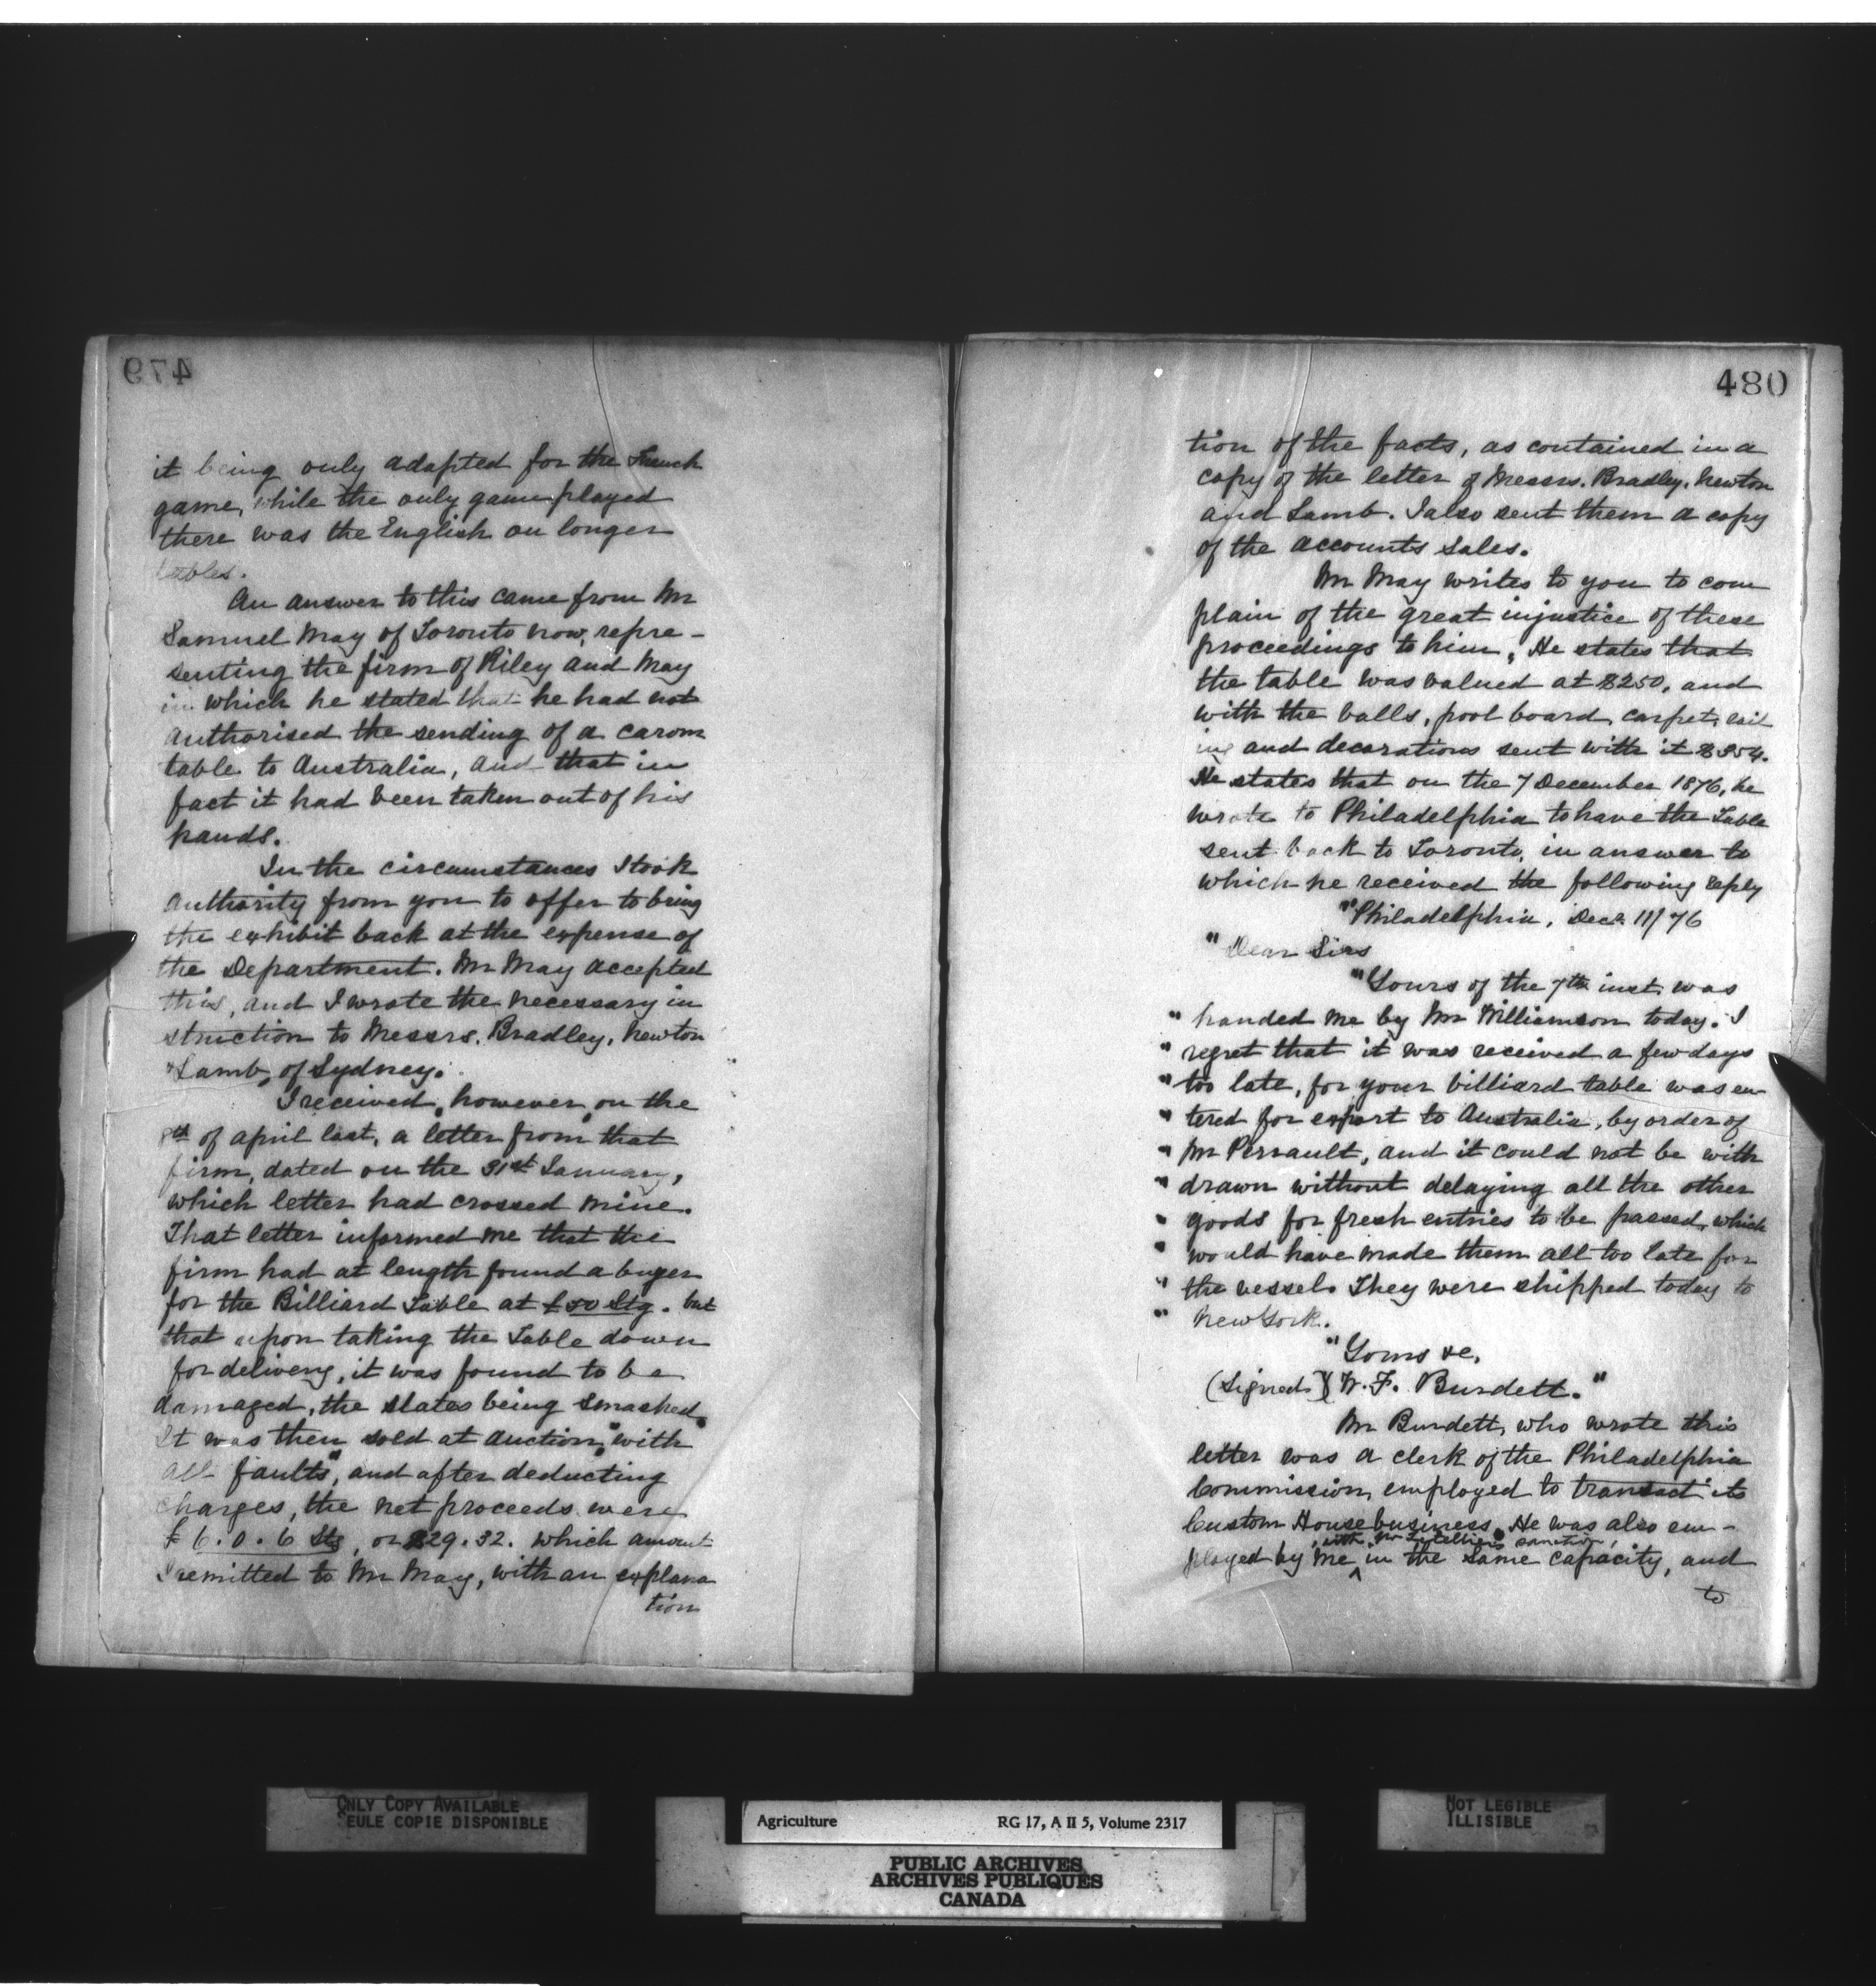 479
it being only adapted for the French
game, while the only game played
there was the English on longer
tables.
An answer to this came from Mr
Samuel May of Toronto now, repre-
senting the firm of Riley and May
in which he stated that he had not
authorised the sending of a carom
table to Australia, and that in
fact it had been taken out of his
hands.
In the circumstances I took
authority from you to offer to bring
the exhibit back at the expense of
the Department. Mr May accepted
this, and I wrote the necessary in
struction to Messrs. Bradley, Newton
& Lamb, of Sydney.
I received, however, on the
8th of April last, a letter from that
firm, dated on the 31st January,
which letter had crossed mine.
That letter informed me that the
firm had at length found a buyer
for the Billiard Table at £50 Stg. but
that upon taking the Table down
for delivery, it was found to be
damaged, the slates being smashed.
It was then sold at auction, "with
all faults", and after deducting
charges, the net proceeds were
£6.0.6 Stg, or $29.32. which amount
I remitted to Mr May, with an explana
tion
480
tion of the facts, as contained in a
copy of the letter of Messrs. Bradley, Newton
and Lamb. I also sent them a copy
of the accounts sales.
Mr May writes to you to com
plain of the great injustice of these
proceedings to him. He states that
the table was valued at $250, and
with the balls, pool board, carpet, rail
ing and decorations sent with it $354.
He states that on the 7 December 1876, he
wrote to Philadelphia to have the Table
sent back to Toronto, in answer to
which he received the following reply
"Philadelphia, Decr. 11/76
"Dear Sirs
"Yours of the 7th inst. was
" handed me by Mr Williamson today. I
" regret that it was received a few days
" too late, for your billiard table was en
" tered for export to Australia, by order of
" Mr Perrault, and it could not be with
" drawn without delaying all the other
" goods for fresh entries to be passed, which
" would have made them all too late for
" the vessel. They were shipped today to
" New York.
"Yours &c.
(Signed) W. F. Burdett."
Mr Burdett, who wrote this
letter was a clerk of the Philadelphia
Commission, employed to transact its
Custom House business. He was also em-
, with Mr Letellier's sanction,
ployed by me ^ in the same capacity, and
to
ONLY COPY AVAILABLE
SEULE COPIE DISPONIBLE
Agriculture RG 17, A II 5, Volume 2317
PUBLIC ARCHIVES
ARCHIVES PUBLIQUES
CANADA
NOT LEGIBLE
ILLISIBLE